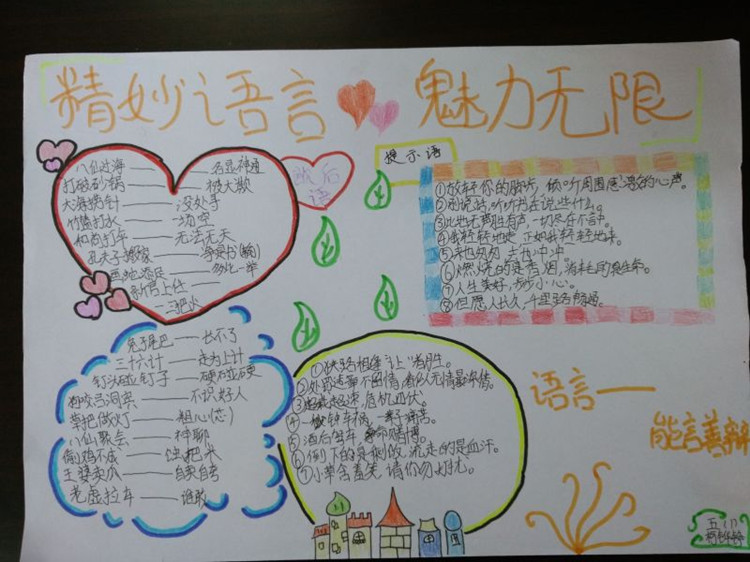 精妙语言 魅力无限
歇后
语
提示语
八仙过海——各显神通
打破砂锅——
大海捞针——没处寻
竹篮打水——一场空
和尚打伞——无法无天
孔夫子搬家——净是书(输)
画蛇添足——多此一举
新官上任——
三把火
兔子尾巴——长不了
三十六计——走为上计
钉头碰钉子——硬碰硬
狗咬吕洞宾——不识好人
——粗心(芯)
八仙聚会——神聊
偷鸡不成——蚀把米
王婆卖瓜——自卖自夸
老虎拉车——谁敢
①放轻你的脚步,倾听周围
②别说话,听听书在说些什么。
③此地无声胜有声,一切尽在不言中。
④我轻轻地走 正如我轻轻地来。
⑤来也匆匆 去也冲冲。
⑥燃烧的是香烟,消耗的是生命。
⑦人生美好,步步小心。
⑧但愿人长久,千里路畅通。
①快路相逢"让"者胜。
②处罚违章不留情 看似无情最有情。
③超速,危机四伏。
④一
⑤酒后驾车 赌博。
⑥倒下的是剩饭 流走的是血汗。
⑦小草含羞笑 请你勿打扰。
语言——
能言善辩
五(1)